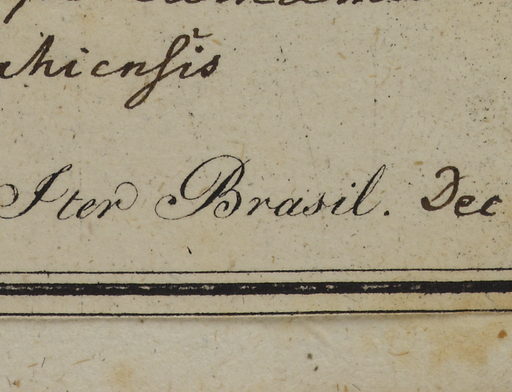 ahiensis
Iter Brasil. Dec